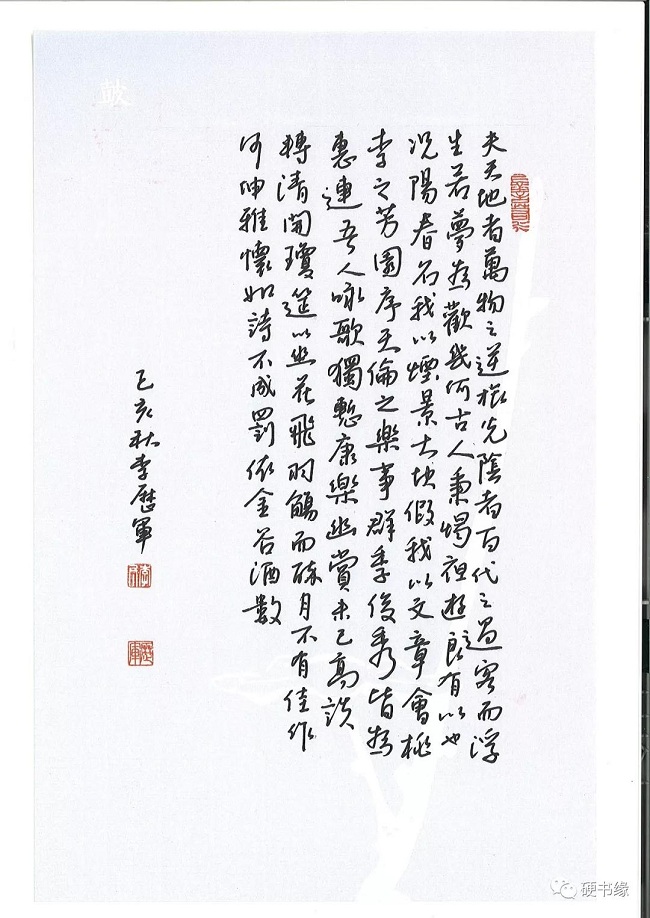 夫天地者萬物之逆旅光陰者百代之過客而浮
生若夢為歡幾何古人秉燭夜遊良有以也
況陽春召我以煙景大塊假我以文章會桃
李之芳園序天倫之樂事群季俊秀皆為
惠連吾人咏歌獨慙康樂幽賞未已高談
轉清開瓊筵以坐花飛羽觴而醉月不有佳作
何伸雅懷如詩不成罰依金谷酒數
己亥秋李歷軍
鼓
硬书缘